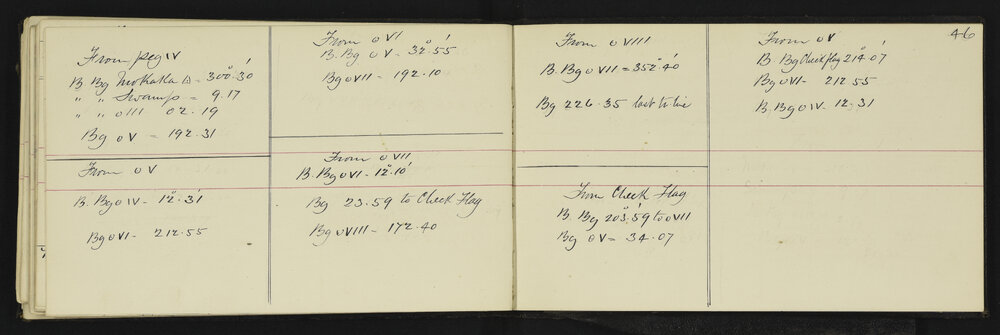 46
From peg IV
B. Bg Mokaka Δ = 300°.30'
" " Swamp = 9.17
" " o III 02.19
Bg o V = 192.31
From o V
B. Bg o IV - 12°.31'
Bg o VI - 212.55
From o VI
B. Bg o V - 32°.55'
Bg o VII - 192.10
From o VII
B. Bg o VI - 12°.10'
Bg 23.59 to Check Flag
Bg o VIII - 172.40
From o VIII
B. Bg o VII = 352°.40'
Bg 226.35 last to
From Check Flag
B. Bg 203°.59' to o VII
Bg o V = 34.07
From o V
B Bg Check flag 214°.07'
Bg o VI - 212.55
B. Bg o IV 12.31